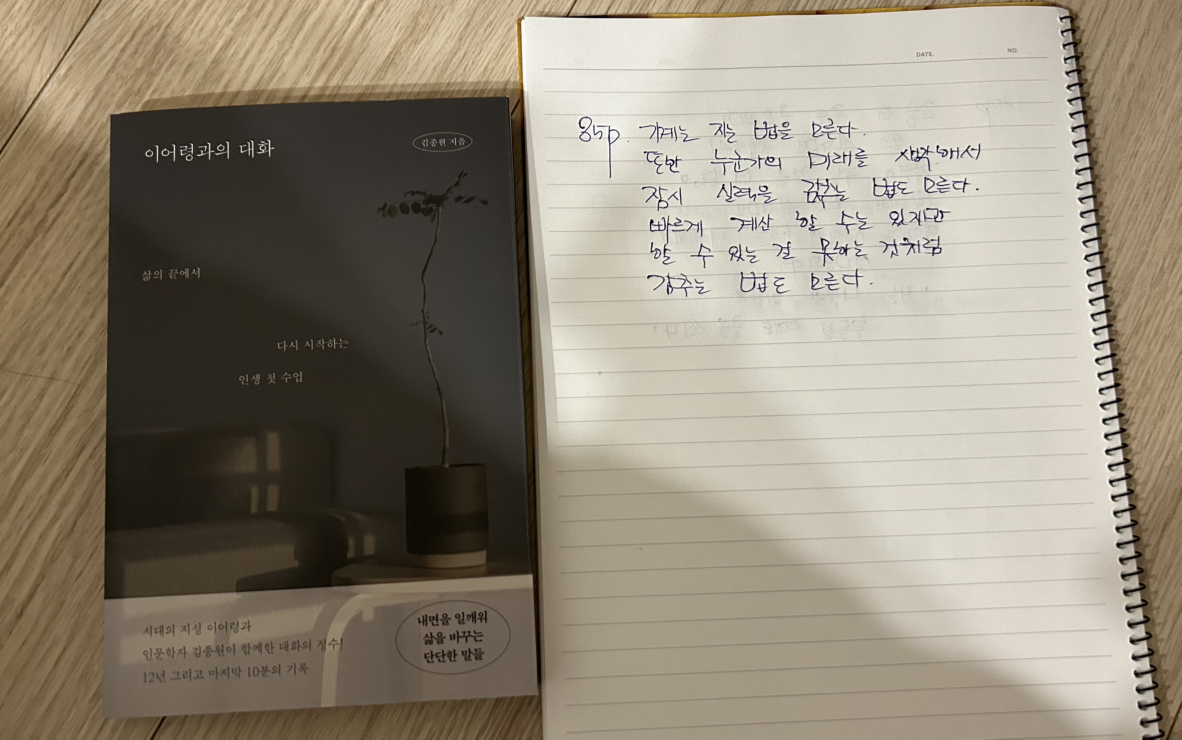 이어령과의 대화
김종원 지음
삶의 끝에서
다시 시작하는
인생 첫 수업
시대의 지성 이어령과
인문학자 김종원이 함께한 대화의 정수!
12년 그리고 마지막 10분의 기록
내면을 일깨워
삶을 바꾸는
단단한 말들
DATE. NO.
85p. 기계는 지는 법을 모른다.
또한 누군가의 미래를 생각해서
잠시 실력을 감추는 법도 모른다.
빠르게 계산 할 수는 있지만
할 수 있는 걸 못하는 것처럼
감추는 법도 모른다.